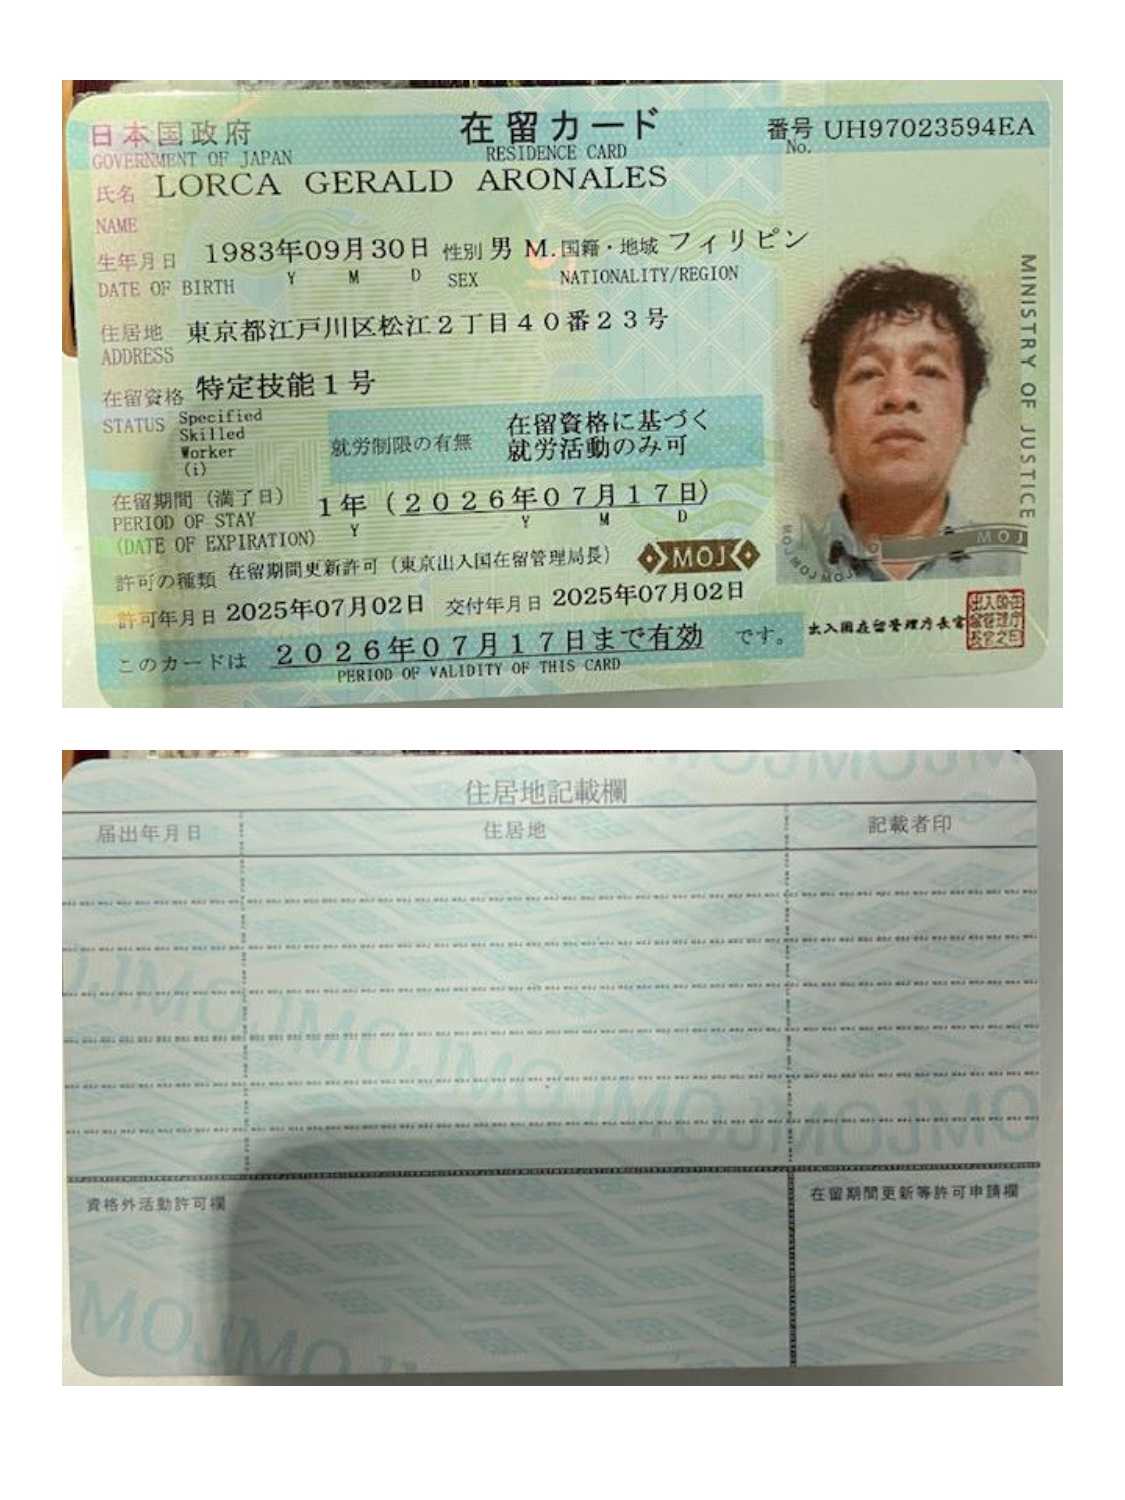 日本国政府
GOVERNMENT OF JAPAN
在留カード
RESIDENCE CARD
番号 UH97023594EA
No.
氏名 LORCA GERALD ARONALES
NAME
生年月日 1983年09月30日 性別 男 M. 国籍・地域 フィリピン
DATE OF BIRTH Y M D SEX NATIONALITY/REGION
住居地 東京都江戸川区松江2丁目40番23号
ADDRESS
在留資格 特定技能1号
STATUS Specified
Skilled
Worker
(i)
就労制限の有無 在留資格に基づく
就労活動のみ可
在留期間(満了日) 1年(2026年07月17日)
PERIOD OF STAY Y Y M D
(DATE OF EXPIRATION)
許可の種類 在留期間更新許可(東京出入国在留管理局長)
MOJ
許可年月日 2025年07月02日 交付年月日 2025年07月02日
このカードは 2026年07月17日まで有効 です。
PERIOD OF VALIDITY OF THIS CARD
MINISTRY OF JUSTICE
MOJ
出入国在留管理庁長官
住居地記載欄
届出年月日 住居地 記載者印
資格外活動許可欄 在留期間更新等許可申請欄
MOJMOJMOJ